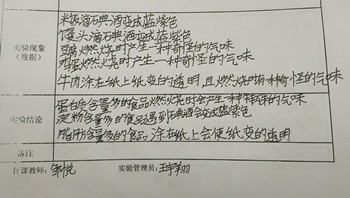 米饭滴碘酒变成蓝紫色
馒头滴碘酒变成蓝紫色
实验现象
豆腐燃烧时产生一种奇怪的气味
(数据)
鸡蛋燃烧时产生一种奇怪的气味
牛肉涂在纸上纸变的透明,且燃烧时有种奇怪的气味
蛋白质含量多的食品燃烧时会产生一种特殊的气味
实验结论
淀粉含量多的食品遇到碘酒会变成蓝紫色
脂肪含量多的食品涂在纸上会使纸变的透明
备注
任课教师: 邹悦 实验管理员: